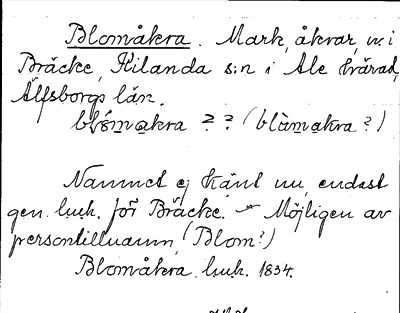 Blomåkra. Mark, åkrar, n. i
Bräcke, Kilanda s:n i Ale härad,
Älfsborgs län.
blómakra ? ? (blòmakra ?)
Namnet ej känt nu, endast
gen. huh. för Bräcke. – Möjligen av
persontillnamn (Blom?)
Blomåkra huh. 1834.